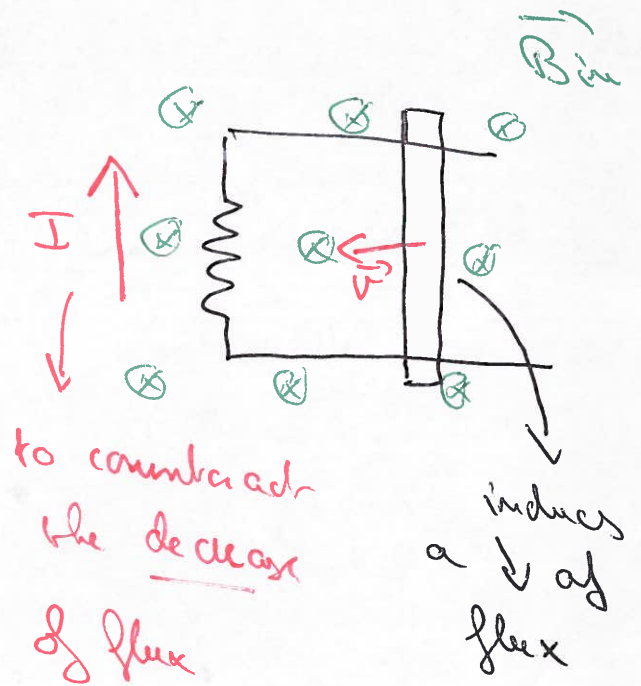 B in
I
v
to counteract
the decrease
of flux
induces
a ↓ of
flux